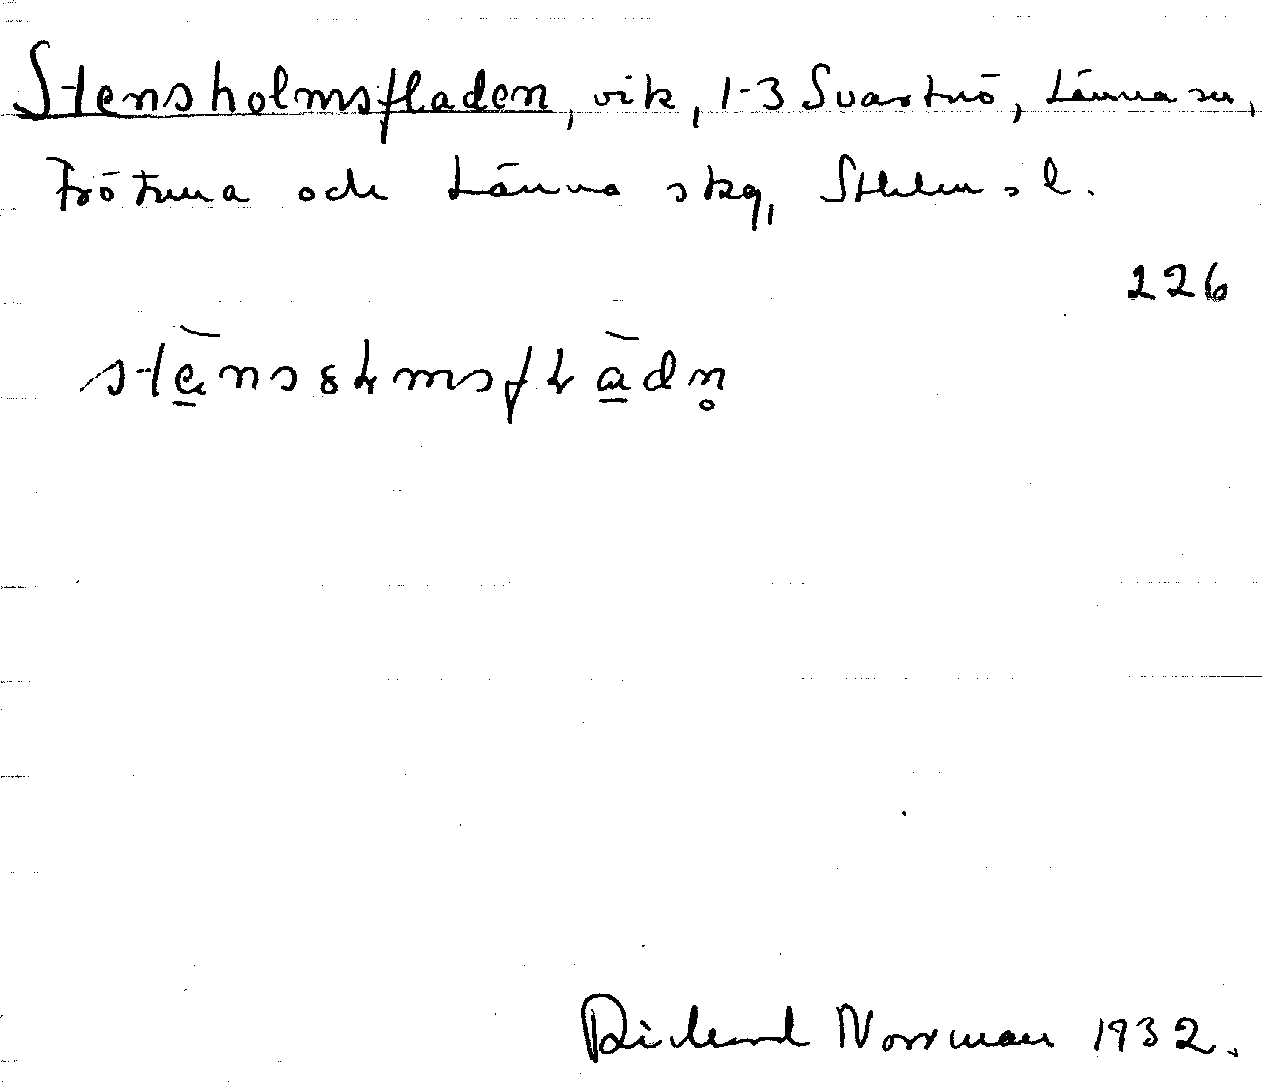 Stensholmsfladen, vik, 1-3 Svartnö, Länna sn,
Frötuna och Länna skg, Sthlms l.
226
Rickard Norrman 1932.